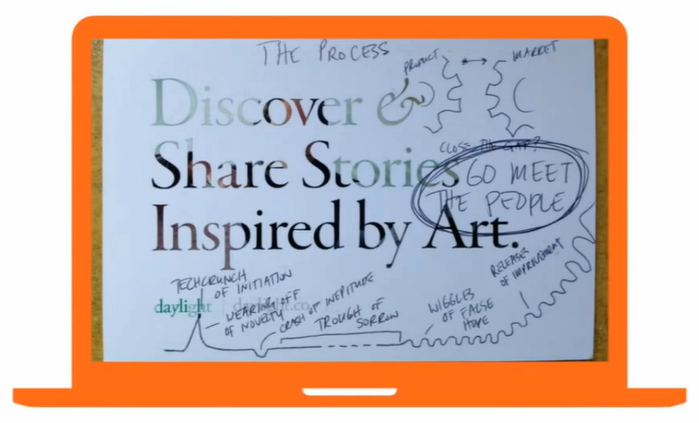 THE PROCESS
PRODUCT
MARKET
Discover &
Share Stories
Inspired by Art.
CLOSE THE GAP?
GO MEET
THE PEOPLE
TECHCRUNCH
OF INITIATION
WEARING OFF
OF NOVELTY
CRASH OF INEPTITUDE
TROUGH OF
SORROW
WIGGLES
OF FALSE
HOPE
RELEASES
OF IMPROVEMENT
daylight
daylight.co